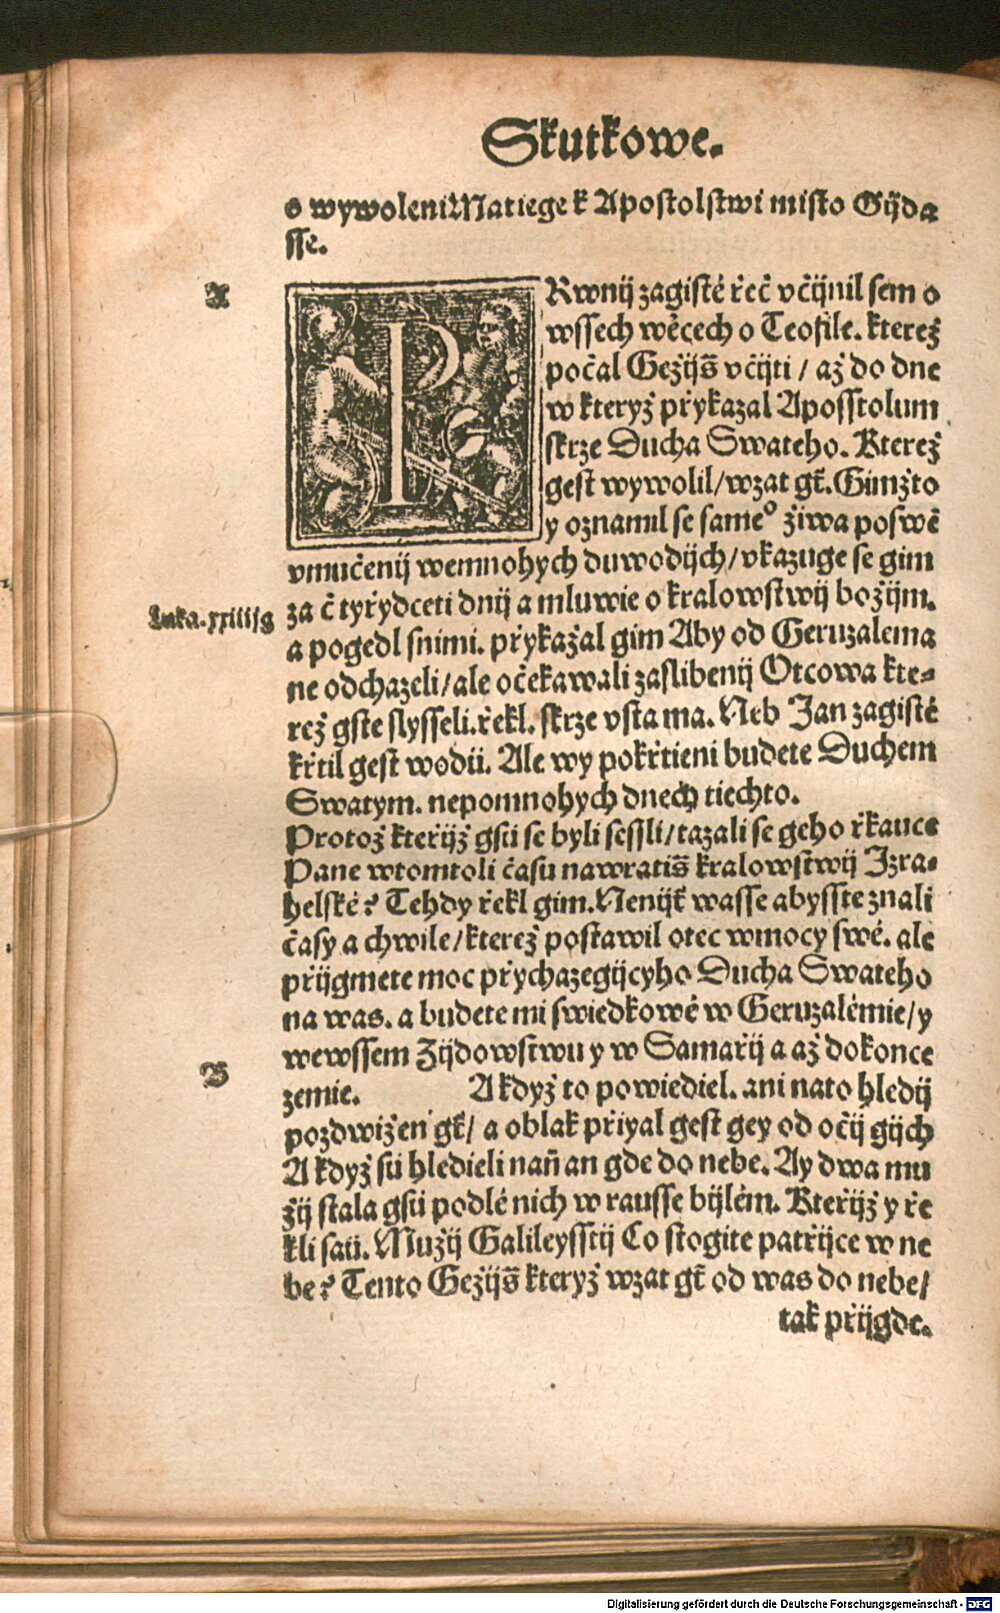 Skutkowe.
o wywoleni Matiege k Apostolstwi misto Gijda
sse.
A
PRwnij zagisté řeč včijnil sem o
wssech wěcech o Teofile. kterež
počal Gežijs̄ včijti / až do dne
w kteryž přykazal Aposstolum
skrze Ducha Swateho. Kterež
gest wywolil/wzat gt̄. Gimžto
y oznamil se sameº žiwa poswē
vmučenij wemnohych duwodijch/vkazuge se gim
za č tyřydceti dnij a mluwie o kralowstwij božijm.
Luka. xxiiijg
a pogedl snimi. přykažal gim Aby od Geruzalema
ne odchazeli/ale očekawali zaslibenij Otcowa kte-
rež gste slysseli. řekl. skrze vsta ma. Neb Jan zagisté
křtil gest wodū. Ale wy pokřtieni budete Duchem
Swatym. nepomnohych dnech tiechto.
Protož kteřijž gsū se byli sessli/tazali se geho řkauce
Pane wtomtoli času nawratis̄ kralowstwij Izra-
helské? Tehdy řekl gim. Nenijt̄ wasse abysste znali
časy a chwile/kterež postawil otec wmocy swé. ale
přijgmete moc přychazegijcyho Ducha Swateho
na was. a budete mi swiedkowé w Geruzalémie/y
wewssem Zijdowstwu y w Samařij a až dokonce
B
zemie. A když to powiediel. ani nato hledij
pozdwižen gt̄/ a oblak přiyal gest gey od očij gijch
A když sū hledieli nan̄ an gde do nebe. Ay dwa mu
žij stala gsū podlé nich w rausse bijlém. Kteřijž y ře
kli saū. Mužij Galileysstij Co stogite patřijce w ne
be? Tento Gežijs̄ kteryž wzat gt̄ od was do nebe/
tak přijgde.
Digitalisierung gefördert durch die Deutsche Forschungsgemeinschaft - DFG